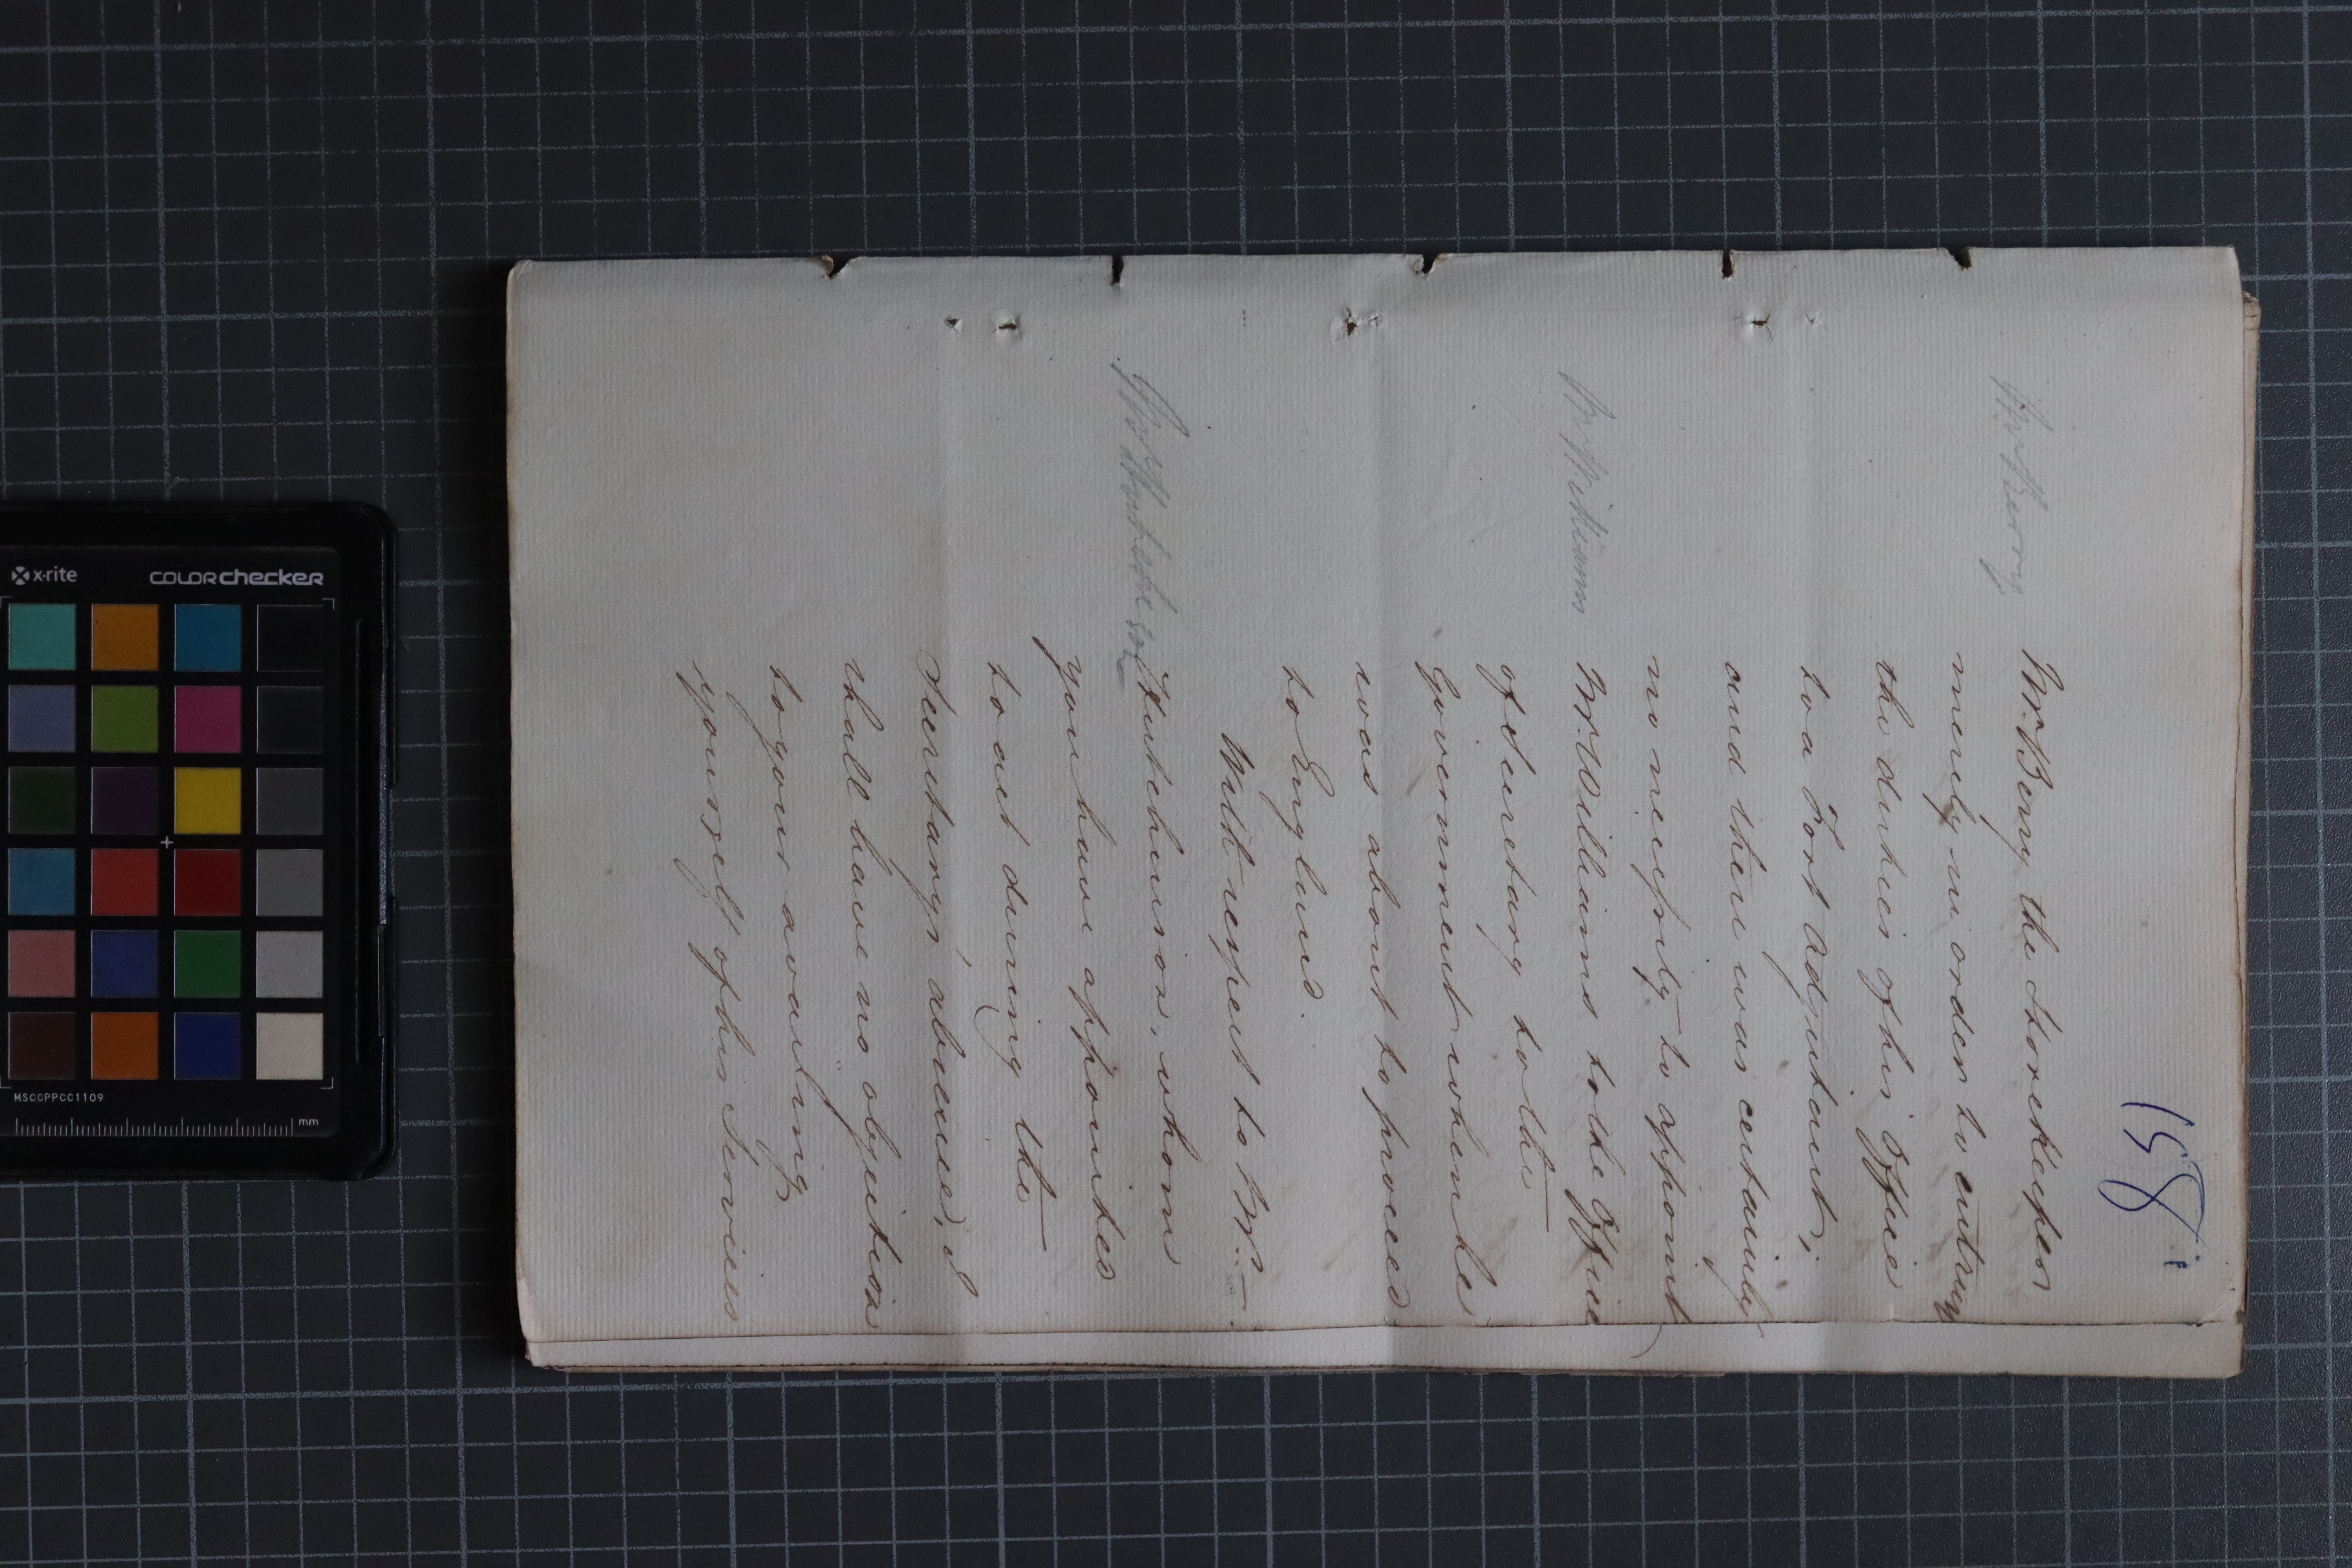 158
Mr. Berry
Mr. Berry the Storekeeper
merely in order to entrust
the duties of his Office
to a Fort Adjutant;
and there was certainly
no necessity to appoint
Mr. Williams
Mr. Williams to the Office
of Secretary to the
Government when he
was about to proceed
to England.
With respect to Mr.
Mr. Hutcheson
Hutchinson, whom
you have appointed
to act during the
Secretary's absence, I
shall have no objection
to your availing
yourself of his Services
x-rite
COLORchecker
MSCCPPCC1109
mm